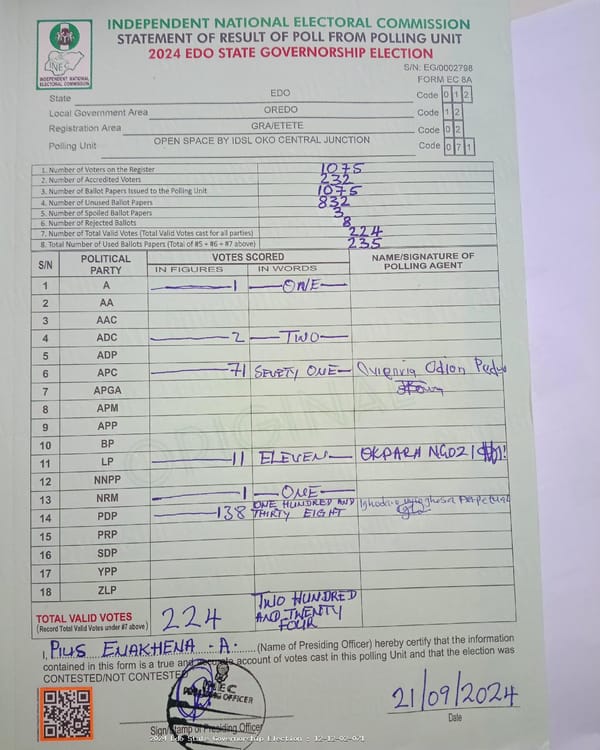 INDEPENDENT NATIONAL ELECTORAL COMMISSION
STATEMENT OF RESULT OF POLL FROM POLLING UNIT
2024 EDO STATE GOVERNORSHIP ELECTION
INEC
INDEPENDENT NATIONAL
ELECTORAL COMMISSION
S/N: EG/0002798
FORM EC 8A
State EDO Code 0 1 2
Local Government Area OREDO Code 1 2
Registration Area GRA/ETETE Code 0 2
Polling Unit OPEN SPACE BY IDSL OKO CENTRAL JUNCTION Code 0 7 1
1. Number of Voters on the Register 1075
2. Number of Accredited Voters 232
3. Number of Ballot Papers Issued to the Polling Unit 1075
4. Number of Unused Ballot Papers 832
5. Number of Spoiled Ballot Papers 3
6. Number of Rejected Ballots 8
7. Number of Total Valid Votes (Total Valid Votes cast for all parties) 224
8. Total Number of Used Ballots Papers (Total of #5 + #6 + #7 above) 235
S/N POLITICAL PARTY VOTES SCORED NAME/SIGNATURE OF POLLING AGENT
IN FIGURES IN WORDS
1 A 1 ONE
2 AA
3 AAC
4 ADC 2 TWO
5 ADP
6 APC 71 SEVETY ONE Odion
7 APGA
8 APM
9 APP
10 BP
11 LP 11 ELEVEN OKPARA NGOZI
12 NNPP
13 NRM 1 ONE
14 PDP 138 ONE HUNDRED AND THIRTY EIGHT Perpetual
15 PRP
16 SDP
17 YPP
18 ZLP
ORIGINAL
TOTAL VALID VOTES 224 TWO HUNDRED AND TWENTY FOUR
(Record Total Valid Votes under #7 above)
I, PIUS ENAKHENA - A. (Name of Presiding Officer) hereby certify that the information
contained in this form is a true and accurate account of votes cast in this polling Unit and that the election was
CONTESTED/NOT CONTESTED
INEC
PRESIDING OFFICER
21/09/2024
Sign/Stamp of Presiding Officer
Date
2024 Edo State Governorship Election : 12-12-02-071